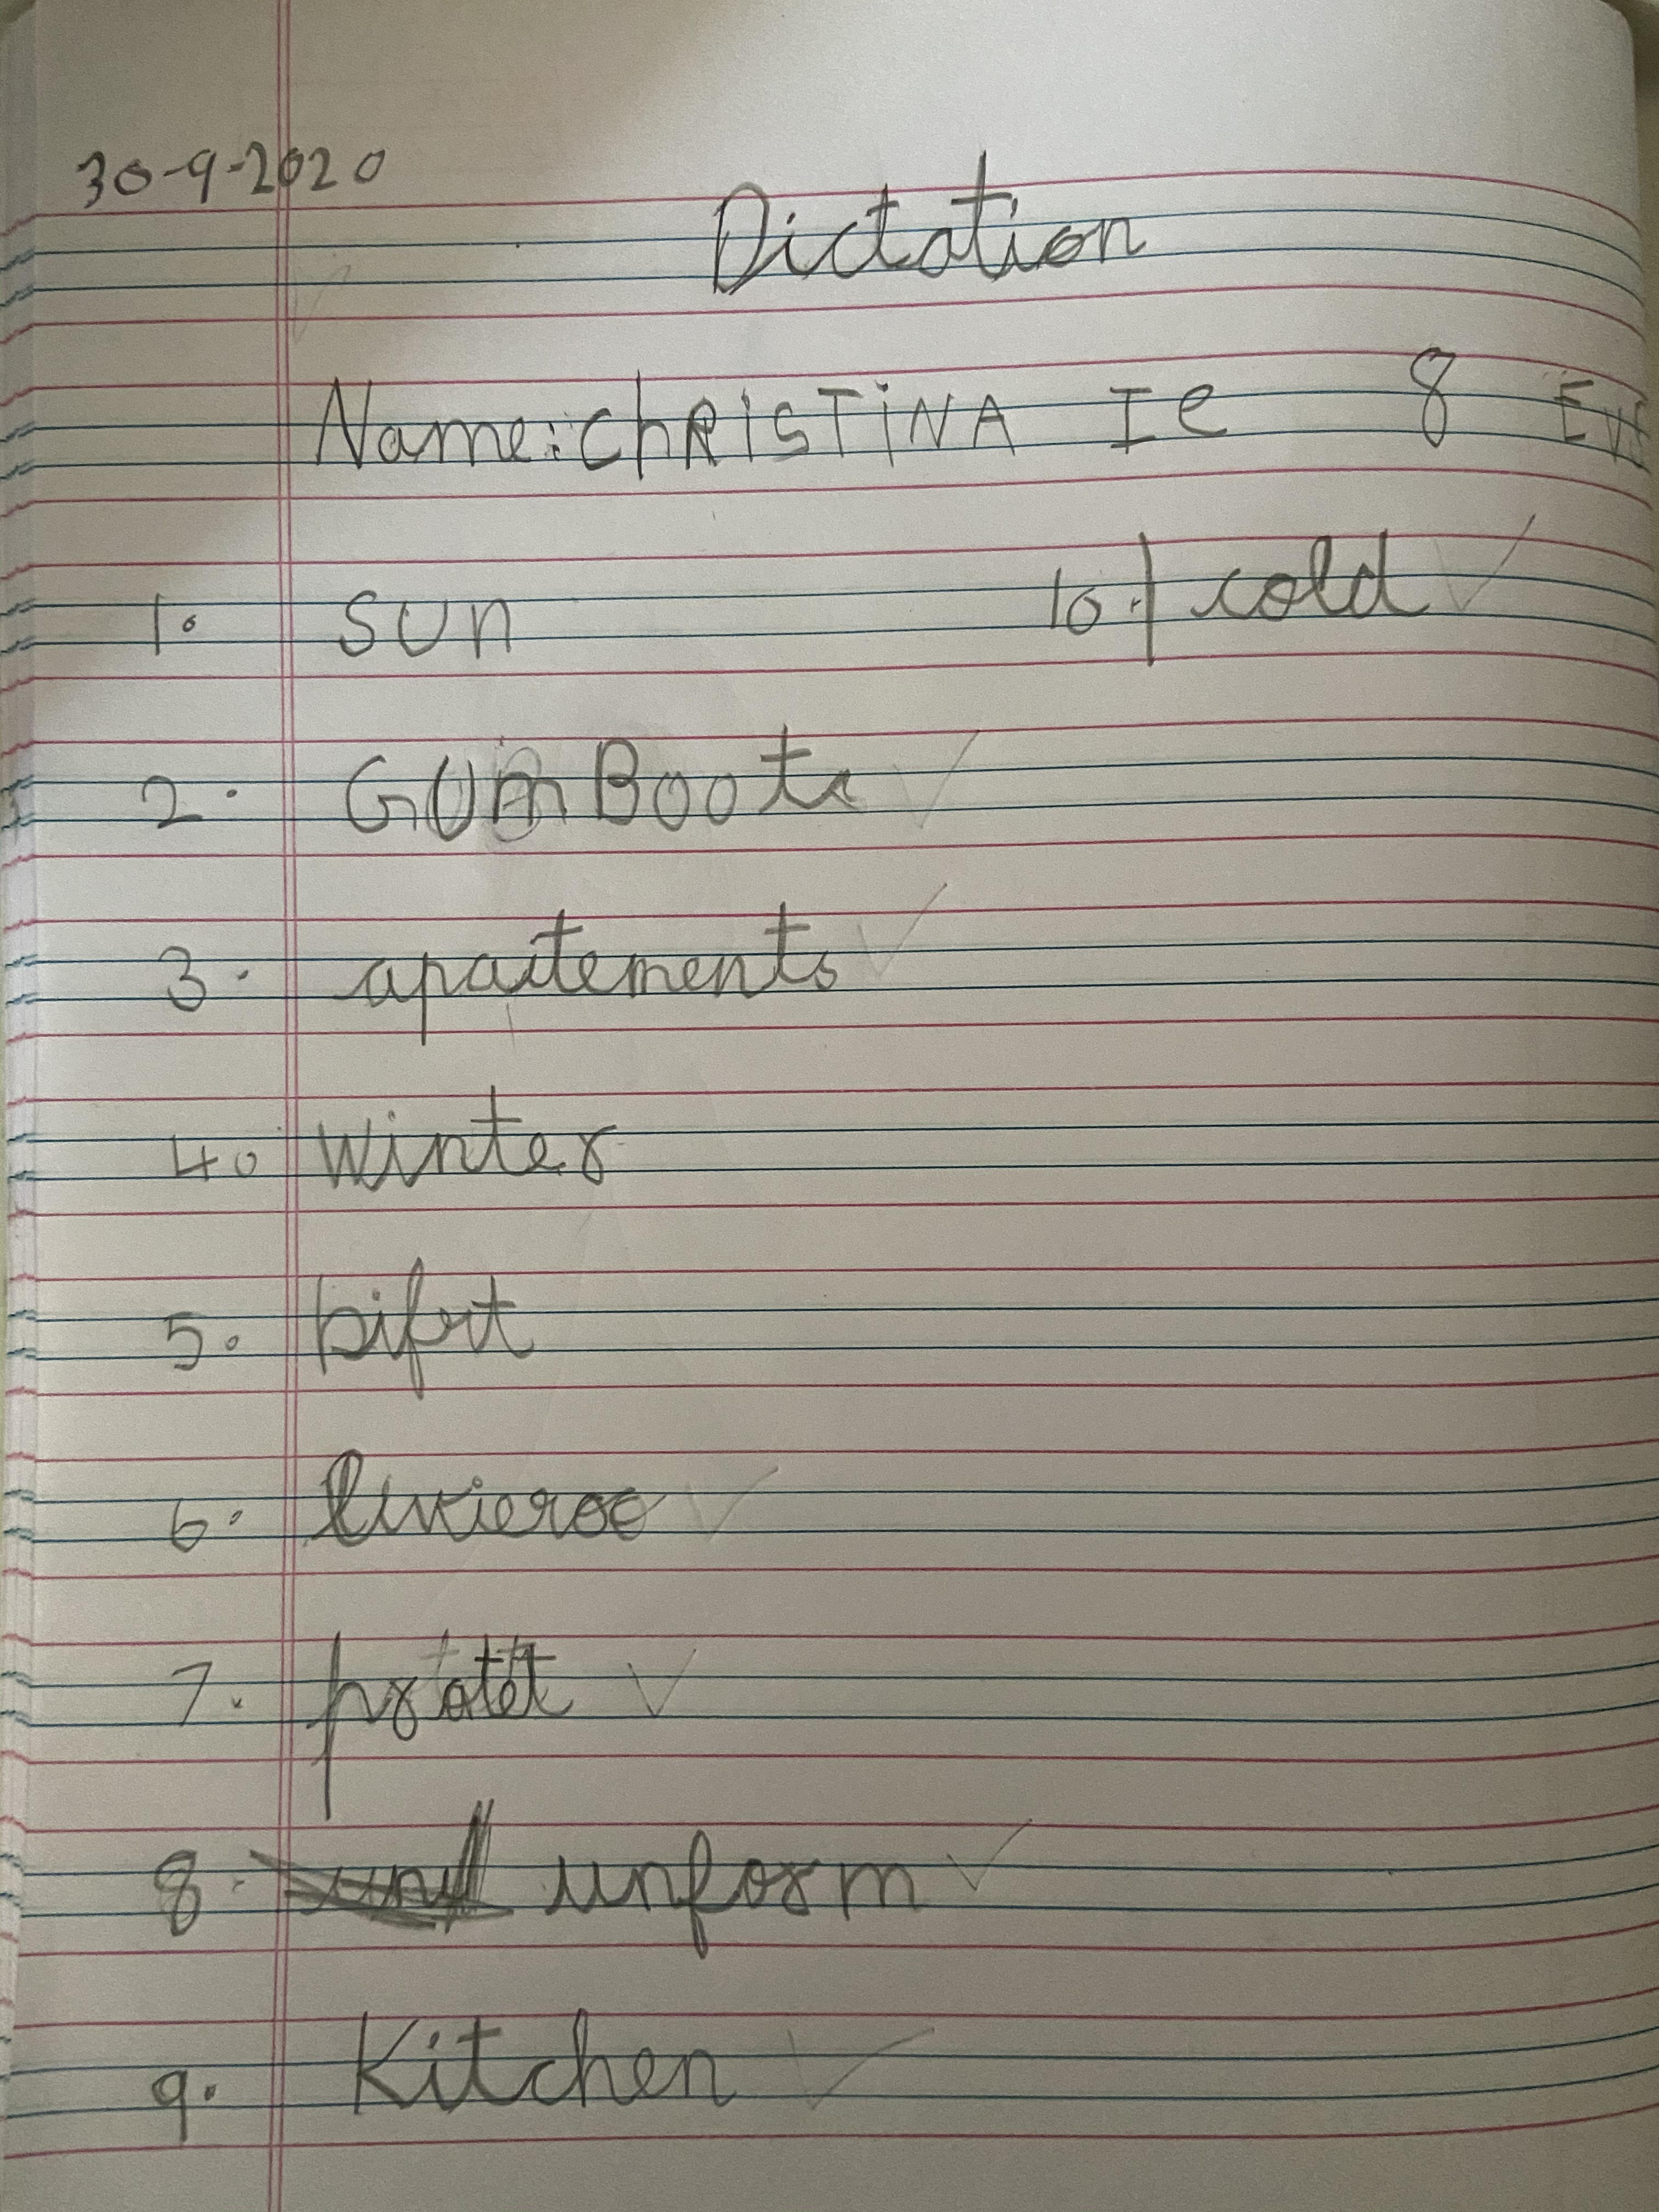 30-9-2020
Dictation
Name: ChRISTINA I C 8 EVS
1. sun 10. cold
2. GUmBoots
3. apartements
4. winter
5. bifrt
6. 
7. 
8. unform
9. Kitchen